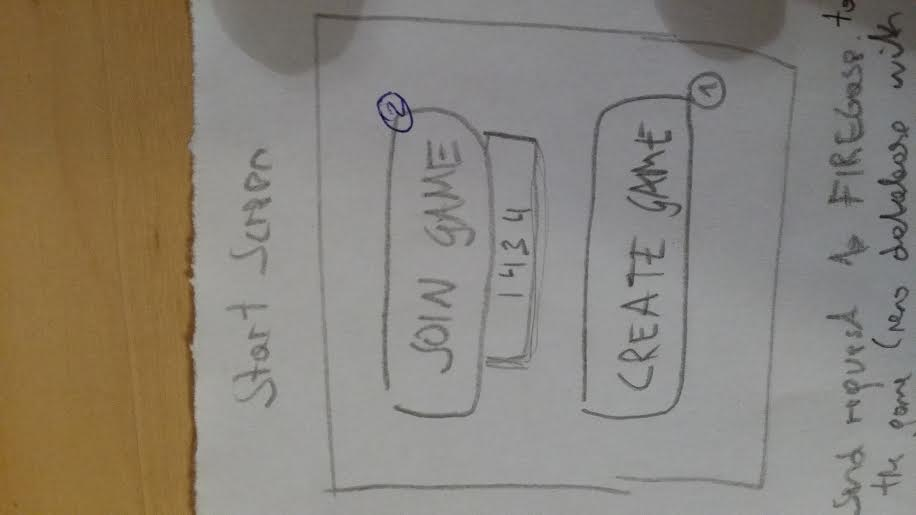 Start Screen
2
JOIN GAME
1434
CREATE GAME
1
Send request to FIREbase. to
the game (new database with